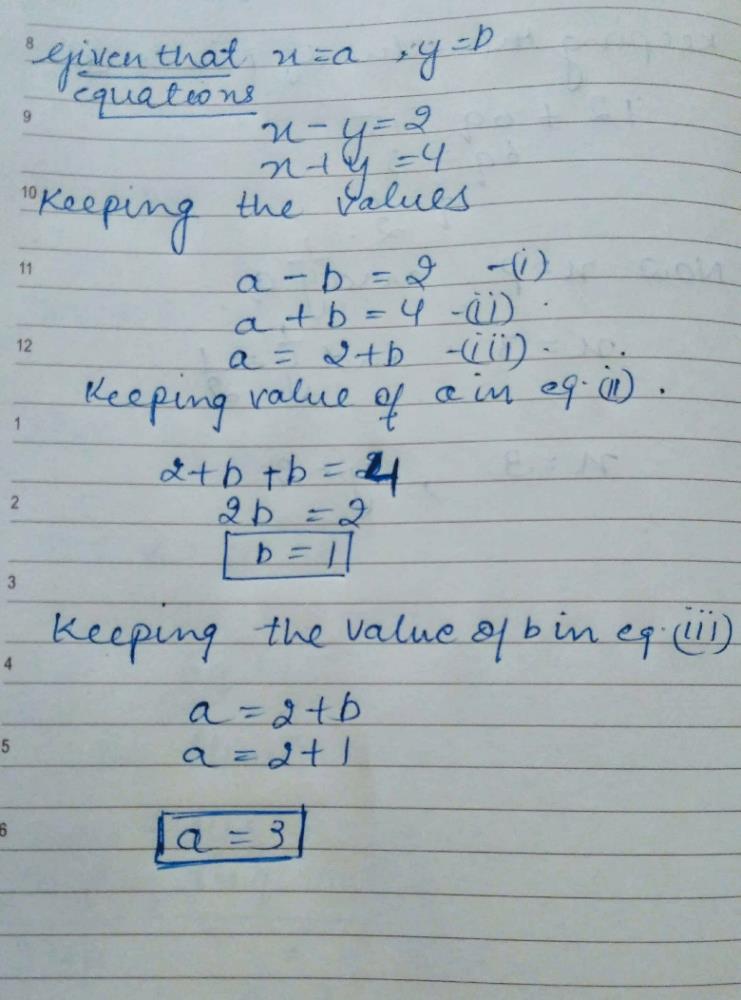 8 Given that x = a , y = b
equations
9
x - y = 2
x + y = 4
10 Keeping the values
11 a - b = 2 -(i)
a + b = 4 -(ii)
12 a = 2+b -(iii).
Keeping value of a in eq.(ii).
1
2+b+b = 4
2 2b = 2
b = 1
3
Keeping the value of b in eq.(iii)
4
a = 2+b
5 a = 2+1
6 a = 3